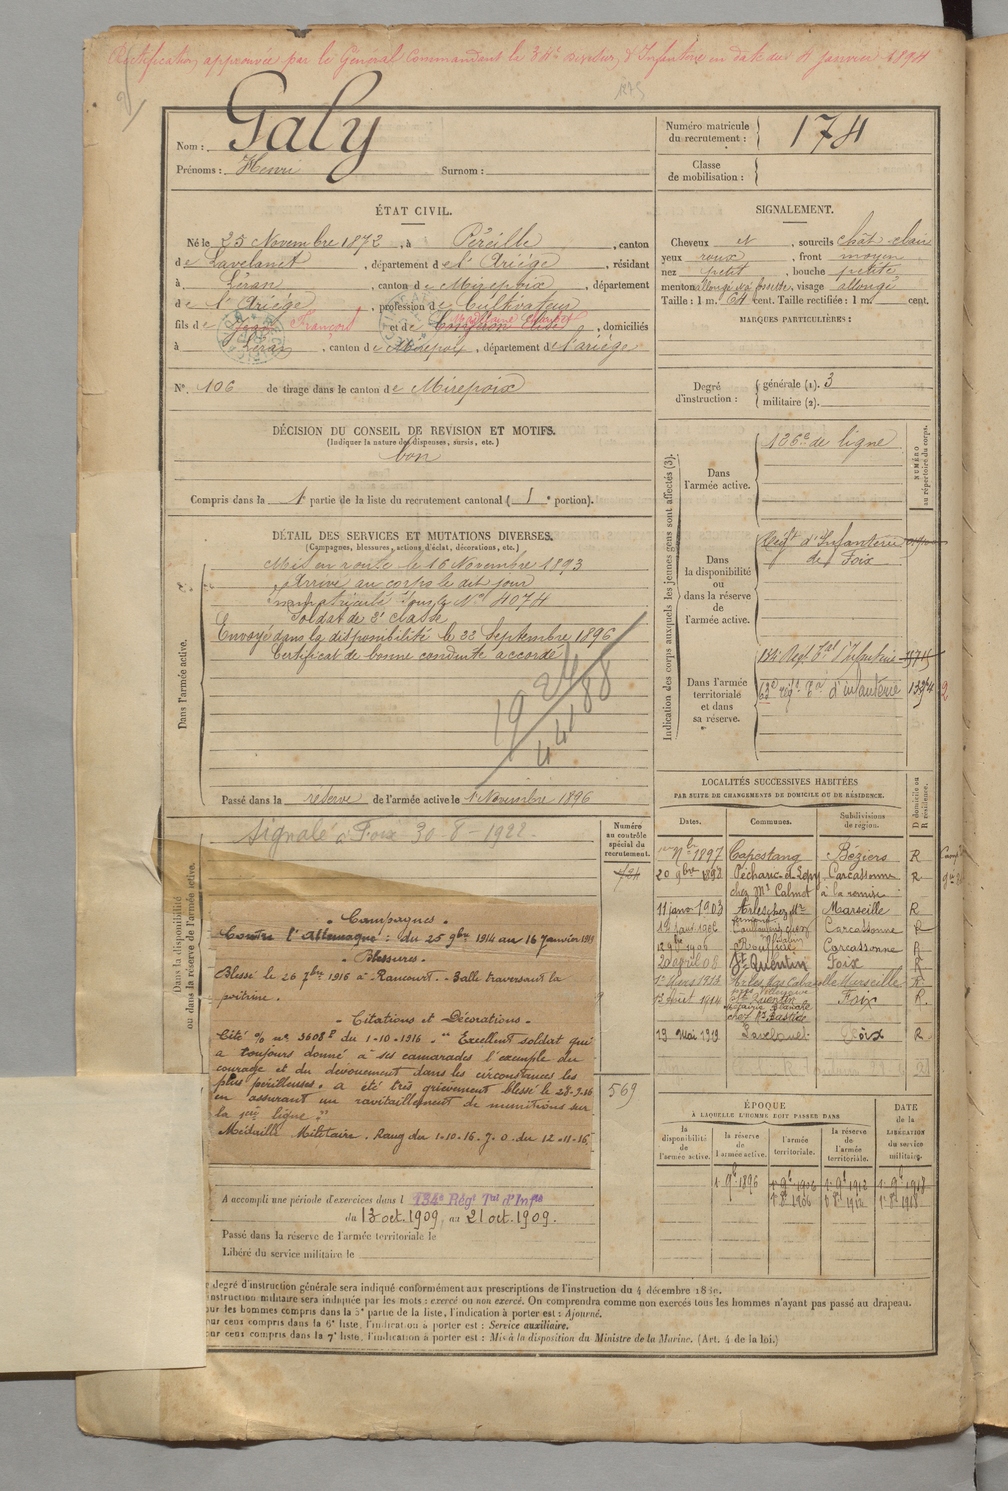 Rectification approuvée par le Général Commandant la 34e Division d'Infanterie en date du 4 janvier 1894
Nom : Galy
Prénoms : Henri Surnom :
Numéro matricule du recrutement : 174
Classe de mobilisation :
ÉTAT CIVIL.
Né le 25 Novembre 1872, à Péreille, canton
de Lavelanet, département de l'Ariège, résidant
à Léran, canton de Mirepoix, département
de l'Ariège, profession de Cultivateur
fils de Jean François et de , domiciliés
à Léran, canton de Mirepoix, département de l'ariège
N° 106 de tirage dans le canton de Mirepoix
SIGNALEMENT.
Cheveux et, sourcils chât-clair
yeux roux, front moyen
nez petit, bouche petite
menton allongé à fossette, visage allongé
Taille : 1 m. 64 cent. Taille rectifiée : 1 m. cent.
MARQUES PARTICULIÈRES :
Degré d'instruction : générale (1). 3
militaire (2).
DÉCISION DU CONSEIL DE REVISION ET MOTIFS.
(Indiquer la nature des dispenses, sursis, etc.)
bon
Compris dans la 1e partie de la liste du recrutement cantonal ( 1e portion).
DÉTAIL DES SERVICES ET MUTATIONS DIVERSES.
(Campagnes, blessures, actions d'éclat, décorations, etc.)
Dans l'armée active.
Mis en route le 16 Novembre 1893
Arrivé au corps le dit jour
Immatriculé sous le No 4074
Soldat de 2e classe
Envoyé dans la disponibilité le 22 Septembre 1896
Certificat de bonne conduite accordé
Passé dans la réserve de l'armée active le 1 Novembre 1896
Indication des corps auxquels les jeunes gens sont affectés (3).
NUMÉRO au répertoire du corps.
Dans l'armée active.
136e de ligne
Dans la disponibilité ou dans la réserve de l'armée active.
Régt d'Infanterie
de Foix
Dans l'armée territoriale et dans sa réserve.
134e Régt Tal d'Infanterie
63e régt Tal d'infanterie
LOCALITÉS SUCCESSIVES HABITÉES
PAR SUITE DE CHANGEMENTS DE DOMICILE OU DE RÉSIDENCE.
D domicile ou R résidence.
Dates. Communes. Subdivisions de région.
1897 Capestang Béziers R
20 9bre 1898 Pécharic-et-Lepy Carcassonne R
chez Mr Calmet à la remise
11 janv. 1903 Arles chez Mr Marseille R
Carcassonne R
Rouffiac Carcassonne R
20 avril 08 St Quentin Foix R
Arles Marseille R
13 Août 1914 St Quentin Foix R
19 Mai 1919 Lavelanet Foix R
Dans la disponibilité ou dans la réserve de l'armée active.
Numéro au contrôle spécial du recrutement.
Signalé à Foix 30-8-1922
- Campagnes -
Contre l'Allemagne : du 25 9bre 1914 au 16 Janvier 1919
- Blessures -
Blessé le 26 7bre 1916 à Rancourt - Balle traversant la
poitrine.
- Citations et Décorations -
Cité % no 3608 D du 1-10-1916 - "Excellent soldat qui
a toujours donné à ses camarades l'exemple du
courage et du dévouement dans les circonstances les
plus périlleuses. a été très grièvement blessé le 28-9-16
en assurant un ravitaillement de munitions sur
la 1ère ligne."
Médaille Militaire. Rang du 1-10-16. J. O. du 12-11-16
569
A accompli une période d'exercices dans l 134e Régt Tal d'Inftie
du 13 oct. 1909 au 21 oct. 1909.
Passé dans la réserve de l'armée territoriale le
Libéré du service militaire le
ÉPOQUE
À LAQUELLE L'HOMME DOIT PASSER DANS
DATE de la LIBÉRATION du service militaire.
la disponibilité de l'armée active.
la réserve de l'armée active.
l'armée territoriale.
la réserve de l'armée territoriale.
1. 9b 1896 1. 9b 1906 1. 9b 1912 1. 9b 1918
1. 8b 1906 1. 8b 1912 1. 8b 1918
e degré d'instruction générale sera indiqué conformément aux prescriptions de l'instruction du 4 décembre 1889.
instruction militaire sera indiquée par les mots : exercé ou non exercé. On comprendra comme non exercés tous les hommes n'ayant pas passé au drapeau.
our les hommes compris dans la 5e partie de la liste, l'indication à porter est : Ajourné.
our ceux compris dans la 6e liste, l'indication à porter est : Service auxiliaire.
our ceux compris dans la 7e liste, l'indication à porter est : Mis à la disposition du Ministre de la Marine. (Art. 4 de la loi.)